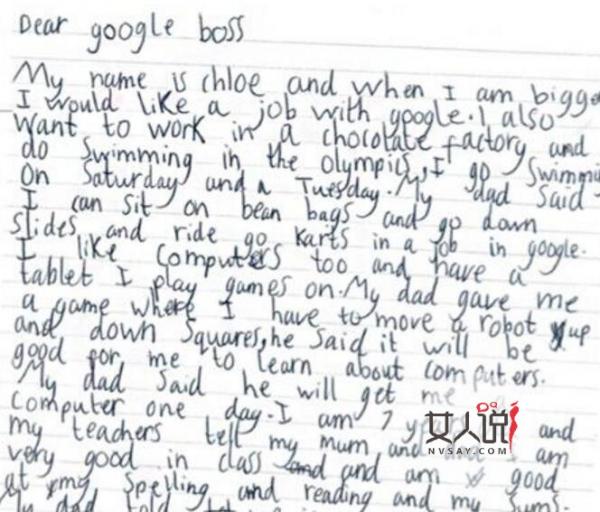 Dear google boss
My name is chloe and when I am bigge
I would like a job with google. I also
want to work in a chocolate factory and
do swimming in the olympics, I go swimmi
on Saturday and a Tuesday. My dad said
I can sit on bean bags and go down
slides and ride go karts in a job in google.
I like computers too and have a
tablet I play games on. My dad gave me
a game where I have to move a robot up
and down squares, he said it will be
good for me to learn about computers.
My dad said he will get me
computer one day. I am 7 and
my teachers tell my mum and I am
very good in class and and am good
at my spelling and reading and my sums.
My dad told
女人说
NVSAY.COM